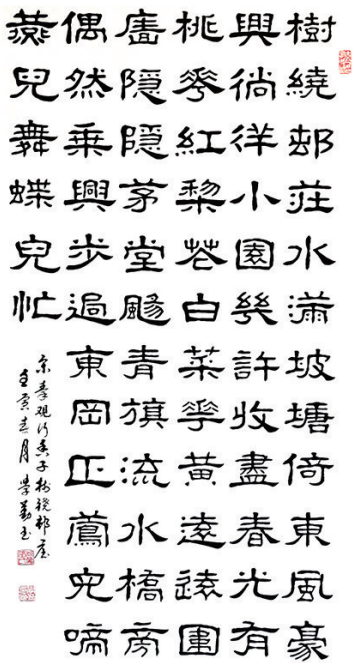 樹繞邨莊水滿坡塘倚東風豪
興徜徉小園幾許收盡春光有
桃華紅棃花白菜華黃遠遠圍
廧隱隱茅堂颺青旗流水橋旁
偶然乘興步過東岡正鶯兒啼
燕兒舞蝶兒忙
宋秦观行香子树绕邨庄
壬寅春月學勤书